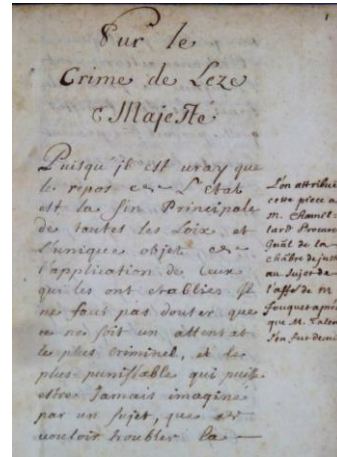 1
Sur le
Crime de Leze
Majesté
Puisqu'jl est vray que
le repos de L'Etat
est la fin Principale
de toutes les Loix, et
l'unique objet de
l'application de Ceux
qui les ont etablies Jl
ne faut pas douter que
ce ne soit un attentat
le plus criminel, et le
plus punissable qui puisse
estre Jamais imaginé
par un sujet, que de
vouloir troubler la
L'on attribue
cette piece a
M. Chamil-
lard Procure
Gnal de la
châbre de just
au Sujet de
l'affre de M
fouquet aprés
que M. Talon
s'en fut demis